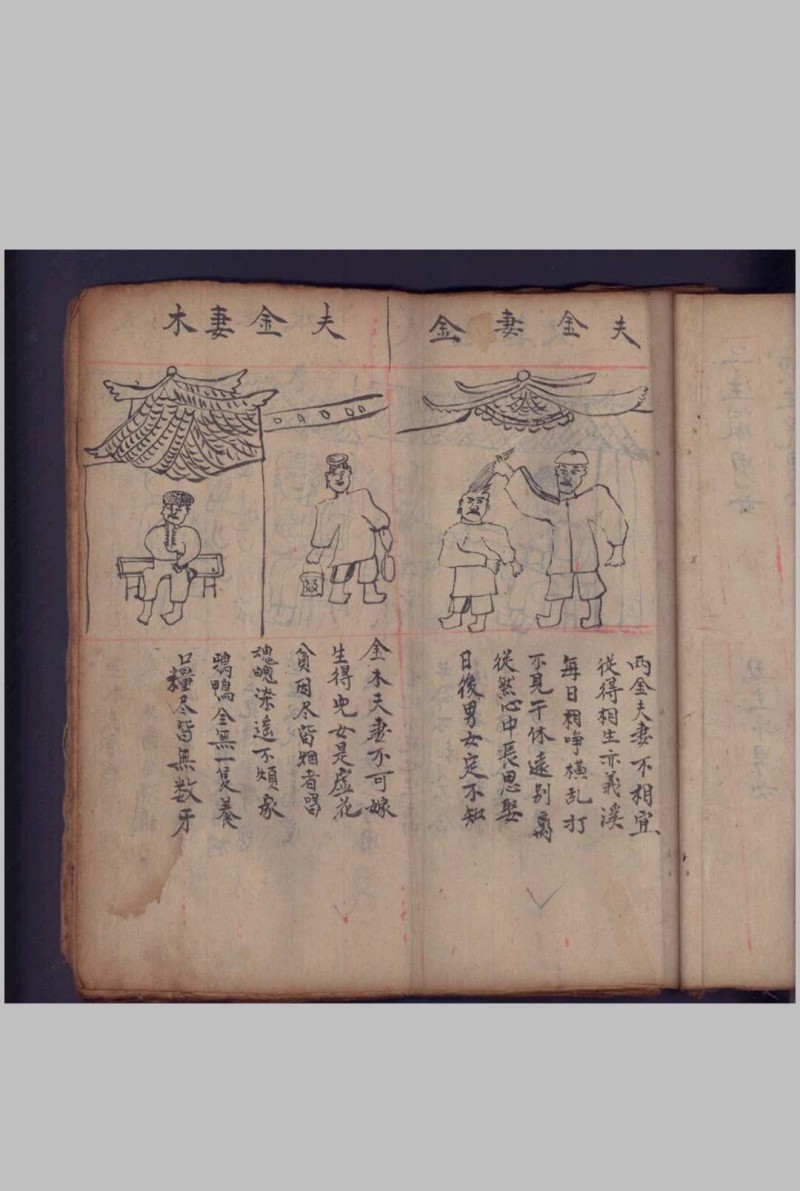 夫金妻金
兩金夫妻不相宜
從得相生亦義溪
每日相啀橫乱打
不見干休遠别
從然心中長思娶
日後男女定不知
夫金妻木
金木夫妻不可嫁
生得児女是虛花
貧因尽皆烟者習
魂魄洣遥不煩家
鴉鴨全無一隻養
口糧尽皆無数牙